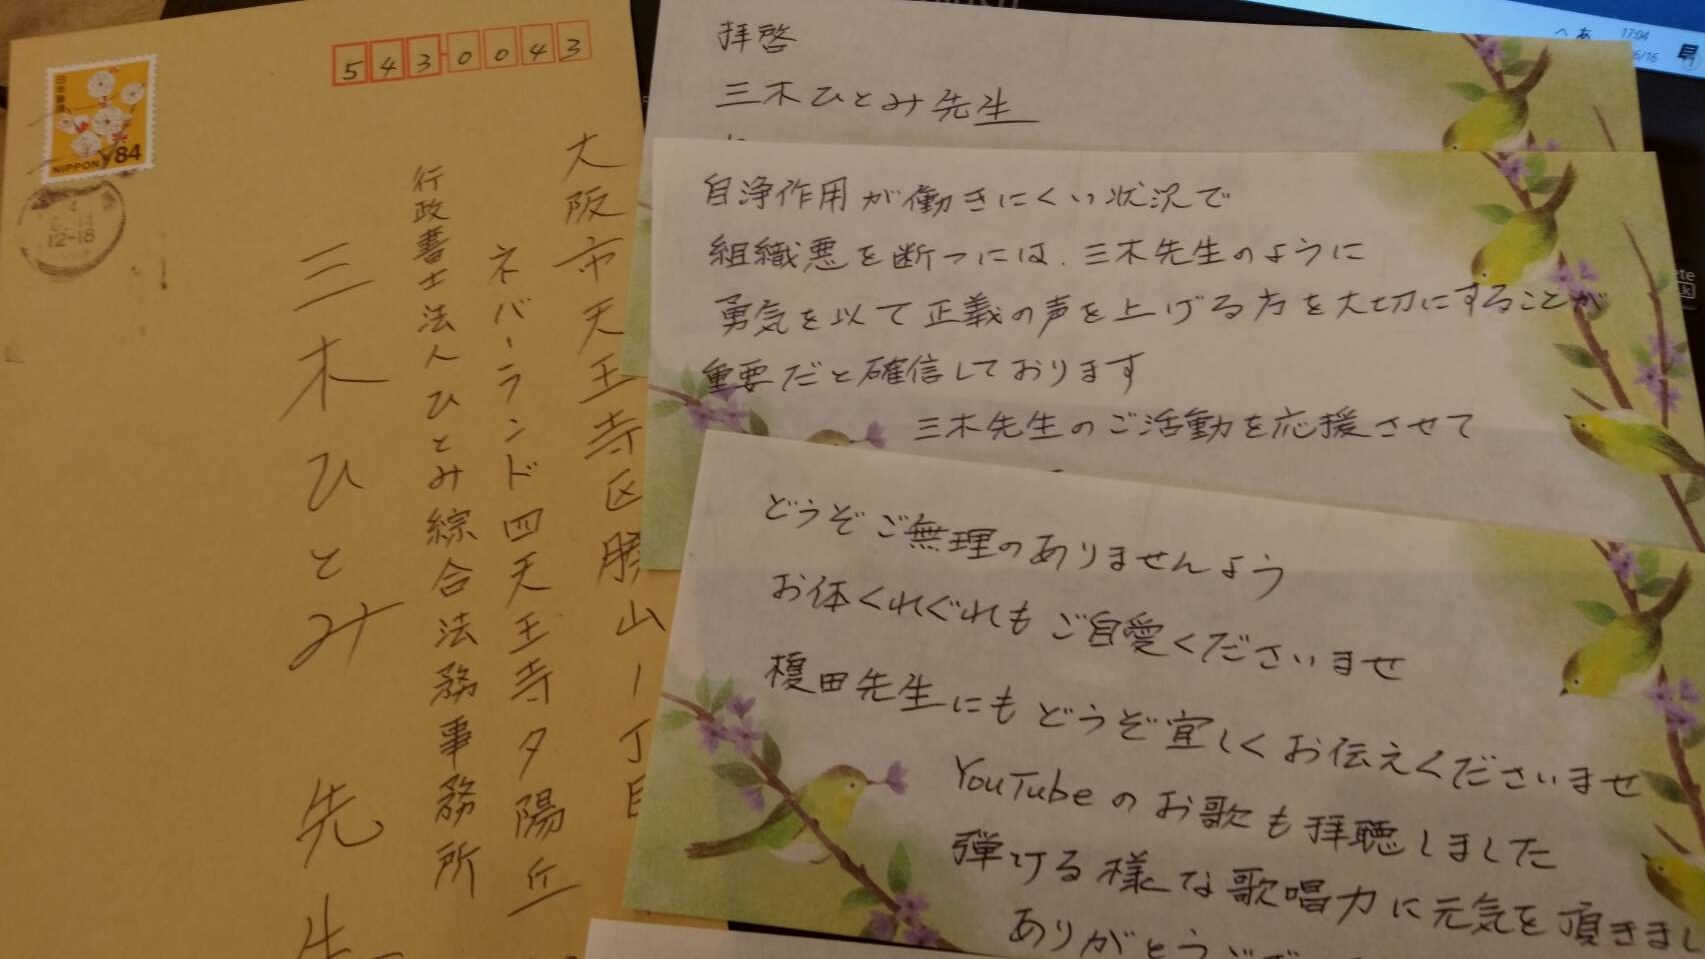 5430043
大阪市天王寺区勝山一丁目
ネバーランド四天王寺夕陽丘
行政書士法人ひとみ綜合法務事務所
三木ひとみ 先生
NIPPON 84
12-18
拝啓
三木ひとみ先生
自浄作用が働きにくい状況で
組織悪を断つには、三木先生のように
勇気を以て正義の声を上げる方を大切にすることが
重要だと確信しております
三木先生のご活動を応援させて
どうぞご無理のありませんよう
お体くれぐれもご自愛くださいませ
榎田先生にもどうぞ宜しくお伝えくださいませ
YouTubeのお歌も拝聴しました
弾ける様な歌唱力に元気を頂きまし
ありがとうござ
17:04